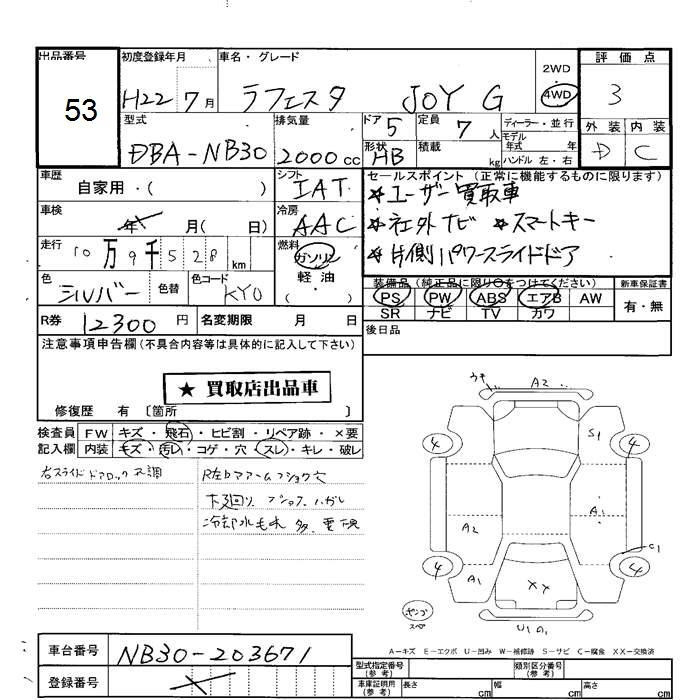 出品番号 初度登録年月 車名・グレード 2WD 評価点
53 H22 7月 ラフェスタ JOY G 4WD 3
型式 排気量 ドア 5 定員 7人 ディーラー・並行 外装 内装
DBA-NB30 2000cc 形状 HB 積載 kg モデル年式 年 D C
ハンドル 左・右
車歴 シフト セールスポイント (正常に機能するものに限ります)
自家用・( ) IAT ★ユーザー買取車
車検 冷房 ★社外ナビ ★スマートキー
年 月( 日) AAC ★片側パワースライドドア
走行 10万9千528km 燃料 ガソリン 軽油・( )
色 シルバー 色替 色コード KY0
装備品 (純正品に限り○をつけてください) 新車保証書
PS PW ABS エアB AW 有・無
SR ナビ TV カワ
R券 12300円 名変期限 月 日 後日品
注意事項申告欄 (不具合内容等は具体的に記入して下さい)
★ 買取店出品車
修復歴 有 〔箇所 〕
検査員 FW キズ・飛石・ヒビ割・リペア跡・×要
記入欄 内装 キズ・汚レ・コゲ・穴・スレ・キレ・破レ
右スライドドアロック不調
下廻り
冷却水
A2
S1
4 4
A2 A1
C1
4 4
A1 XX
スペ
A-キズ E-エクボ U-凹み W-補修跡 S-サビ C-腐食 XX-交換済
車台番号 NB30-203671
登録番号
型式指定番号(参考) 類別区分番号(参考)
車庫証明用(参考) 長さ cm 幅 cm 高さ cm